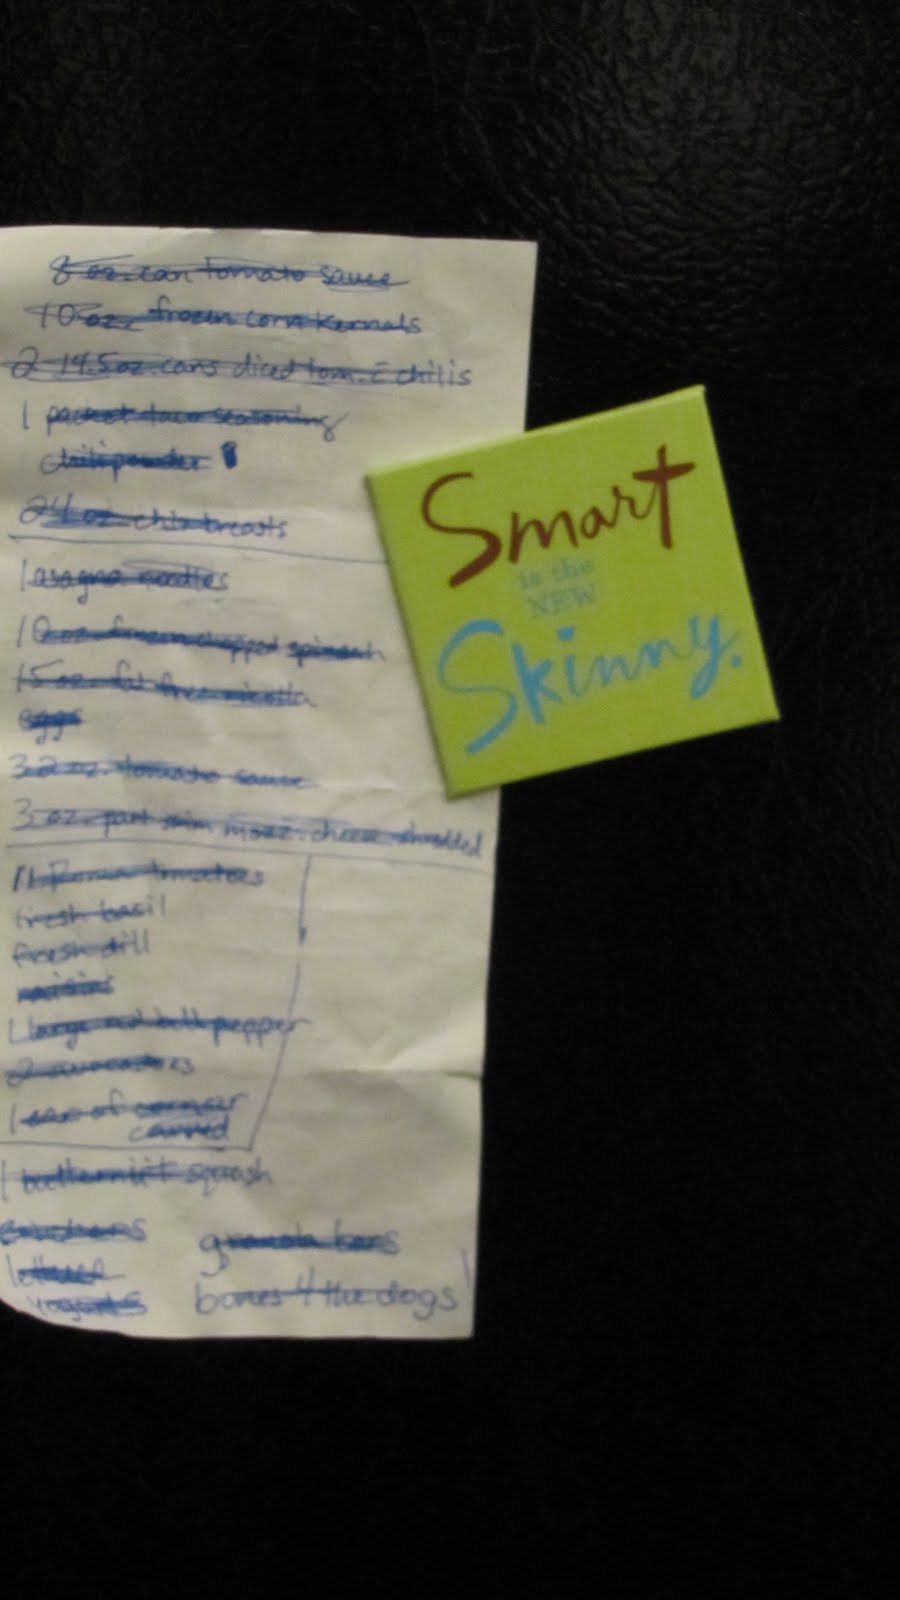 8 oz. can tomato sauce
10 oz. frozen corn kernals
2 14.5 oz. cans diced tom. c̄ chilis
1 packet taco seasoning
chili powder
24 oz chix breasts
lasagna noodles
10 oz. frozen chopped spinach
15 oz. fat free ricotta
eggs
32 oz. tomato sauce
3 oz. part skim mozz. cheese shredded
11 Roma tomatoes
fresh basil
fresh dill
raisins
1 large red bell pepper
2 avocadoes
1 can of
canned
1 butternut squash
lettuce
yogurts
granola bars
bones 4 the dogs
Smart
is the
NEW
Skinny.